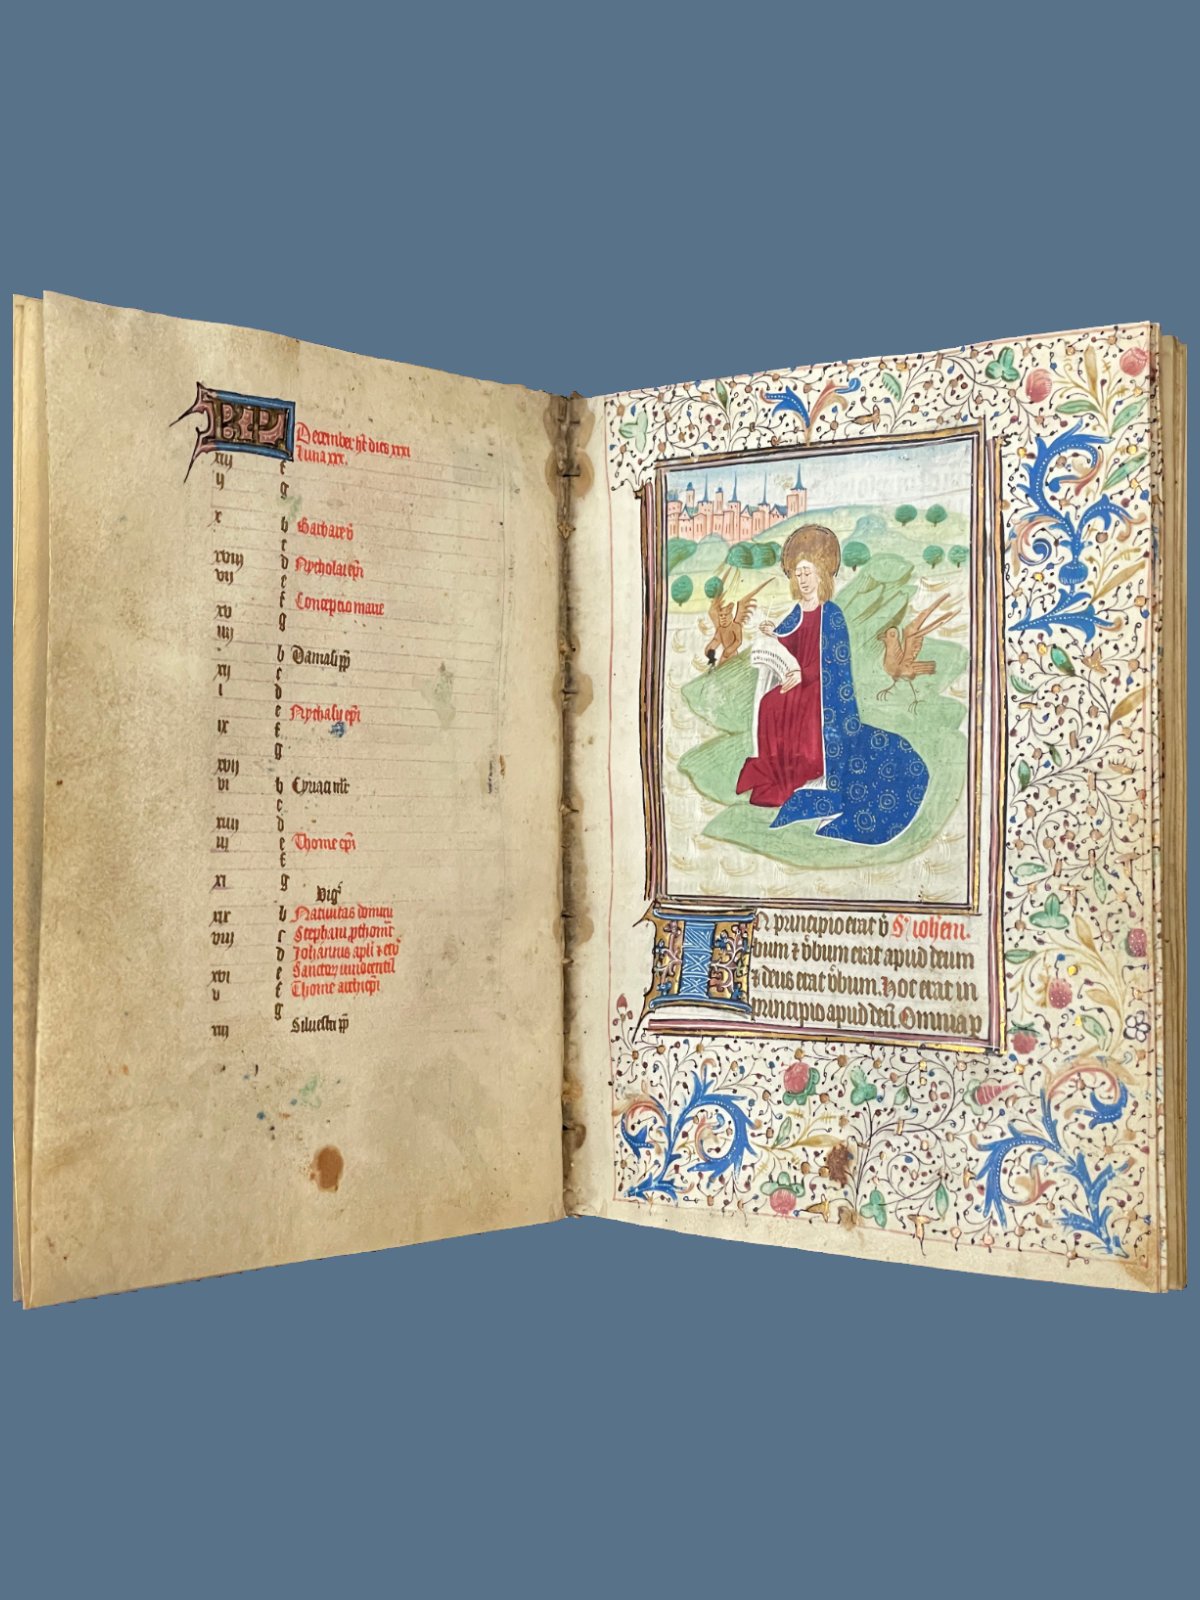 KL December ht dies xxxi
luna xxx.
xiij f
ij g
x b Barbare v
c
xviij d Nycholai epi
vij e
f Conceptio marie
xv g
iiij
b Damasi pp
xij c
i d
e Nychasij epi
ix f
g
xvij
vi b Cyriaci mr
c
xiiij d
iij e Thome epi
f
xi g
Vigᵃ
xix b Nativitas domini
viij c Stephani prthomr
d Johannis apli et ev
xvi e Sanctorz innocentil
v f Thome archiepi
g
xiij Silvestri pp
IN principio erat v S iohem.
bum et vbum erat apud deum
et deus erat vbum. Hoc erat in
principio apud deu. Omnia p